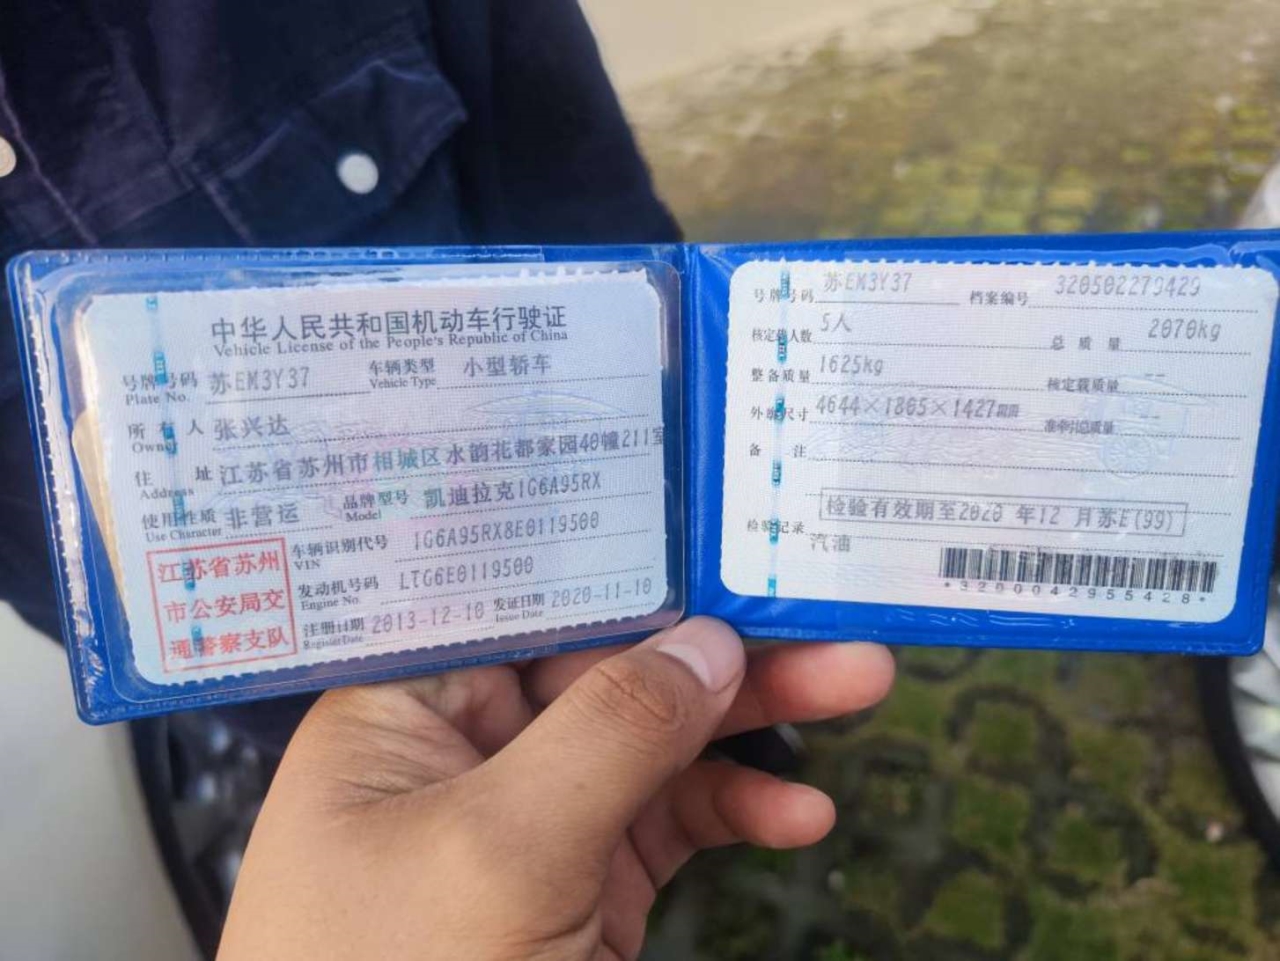 中华人民共和国机动车行驶证
Vehicle License of the People's Republic of China
号牌号码 苏EM3Y37 车辆类型 小型轿车
Plate No. Vehicle Type
所有人 张兴达
Owner
住址 江苏省苏州市相城区水韵花都家园40幢211室
Address
使用性质 非营运 品牌型号 凯迪拉克1G6A95RX
Use Character Model
江苏省苏州
市公安局交
通警察支队
车辆识别代号 1G6A95RX8E0119500
VIN
发动机号码 LTG6E0119500
Engine No.
注册日期 2013-12-10 发证日期 2020-11-10
Register Date Issue Date
号牌号码 苏EM3Y37 档案编号 320502279429
核定载人数 5人 总质量 2070kg
整备质量 1625kg 核定载质量 --
外廓尺寸 4644×1805×1427mm 准牵引总质量 --
备注
检验有效期至2020年12月苏E(99)
检验记录
汽油
*3200042955428*